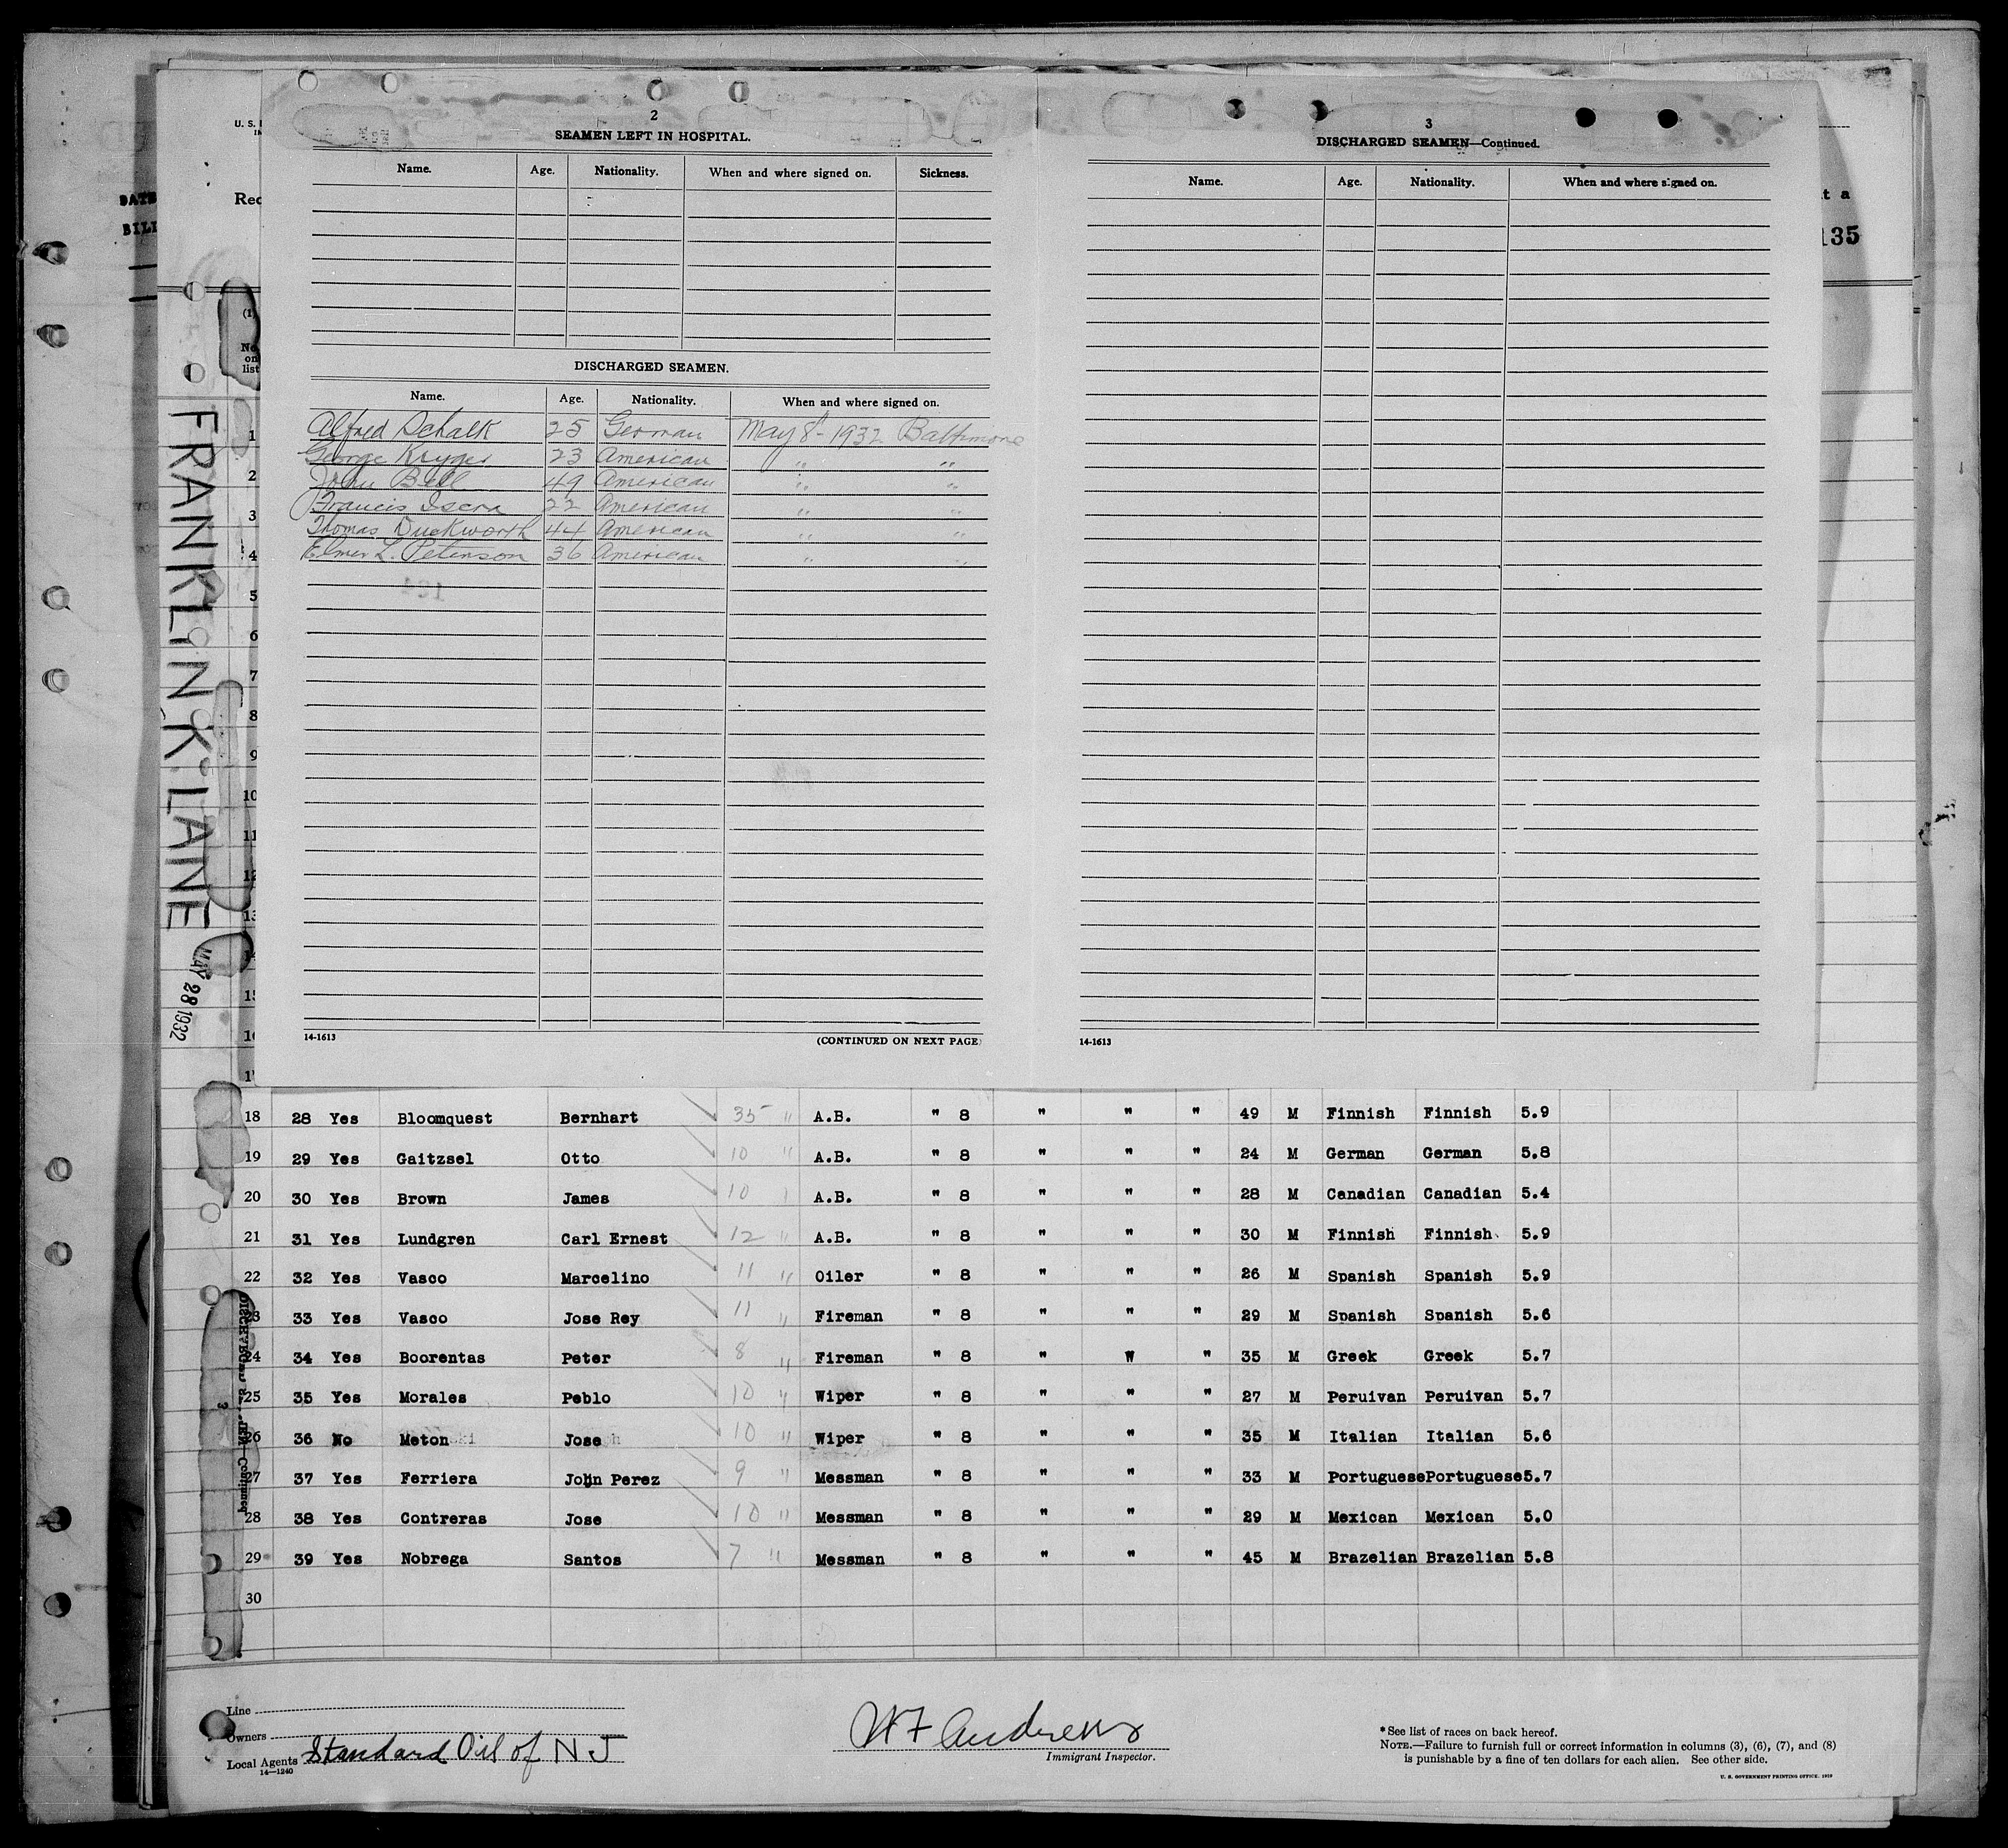 U. S.
Rec
DATE
BILL
(1)
No.
on
list
FRANKLIN K. LANE
MAY 28 1932
2
SEAMEN LEFT IN HOSPITAL.
Name. Age. Nationality. When and where signed on. Sickness.
DISCHARGED SEAMEN.
Name. Age. Nationality. When and where signed on.
Alfred Schalk 25 German May 8-1932 Baltimore
George Kryger 23 American " "
John Bell 49 American " "
Francis Iscra 22 American " "
Thomas Duckworth 44 American " "
Elmer L. Peterson 36 American " "
14-1613 (CONTINUED ON NEXT PAGE)
3
DISCHARGED SEAMEN—Continued.
Name. Age. Nationality. When and where signed on.
14-1613
t a
135
1
2
3
4
5
6
7
8
9
10
11
12
13
14
15
16
17
18 28 Yes Bloomquest Bernhart 35 " A.B. " 8 " " " 49 M Finnish Finnish 5.9
19 29 Yes Gaitzsel Otto 10 " A.B. " 8 " " " 24 M German German 5.8
20 30 Yes Brown James 10 " A.B. " 8 " " " 28 M Canadian Canadian 5.4
21 31 Yes Lundgren Carl Ernest 12 " A.B. " 8 " " " 30 M Finnish Finnish 5.9
22 32 Yes Vasco Marcelino 11 " Oiler " 8 " " " 26 M Spanish Spanish 5.9
23 33 Yes Vasco Jose Rey 11 " Fireman " 8 " " " 29 M Spanish Spanish 5.6
24 34 Yes Boorentas Peter 8 " Fireman " 8 " W " 35 M Greek Greek 5.7
25 35 Yes Morales Peblo 10 " Wiper " 8 " " " 27 M Peruivan Peruivan 5.7
26 36 No Meton Jose 10 " Wiper " 8 " " " 35 M Italian Italian 5.6
27 37 Yes Ferriera John Perez 9 " Messman " 8 " " " 33 M Portuguese Portuguese 5.7
28 38 Yes Contreras Jose 10 " Messman " 8 " " " 29 M Mexican Mexican 5.0
29 39 Yes Nobrega Santos 7 " Messman " 8 " " " 45 M Brazelian Brazelian 5.8
30
Line
Owners
Local Agents Standard Oil of N J
14—1240
W F Andrews
Immigrant Inspector.
* See list of races on back hereof.
NOTE.—Failure to furnish full or correct information in columns (3), (6), (7), and (8)
is punishable by a fine of ten dollars for each alien. See other side.
U. S. GOVERNMENT PRINTING OFFICE: 1929